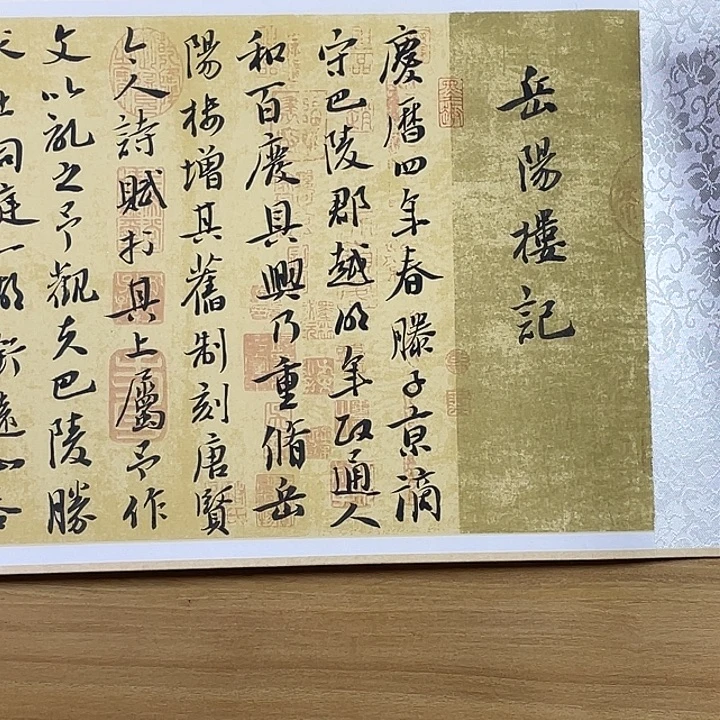 岳陽樓記
慶曆四年春滕子京謫
守巴陵郡越明年政通人
和百廢具興乃重脩岳
陽樓增其舊制刻唐賢
今人詩賦於其上屬予作
文以記之予觀夫巴陵勝
狀在洞庭一湖銜遠山吞